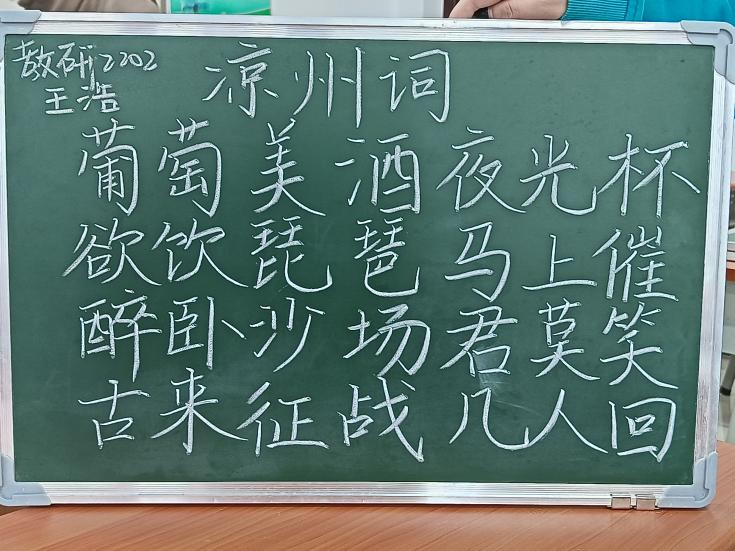 教研2202
王浩
凉州词
葡萄美酒夜光杯
欲饮琵琶马上催
醉卧沙场君莫笑
古来征战几人回